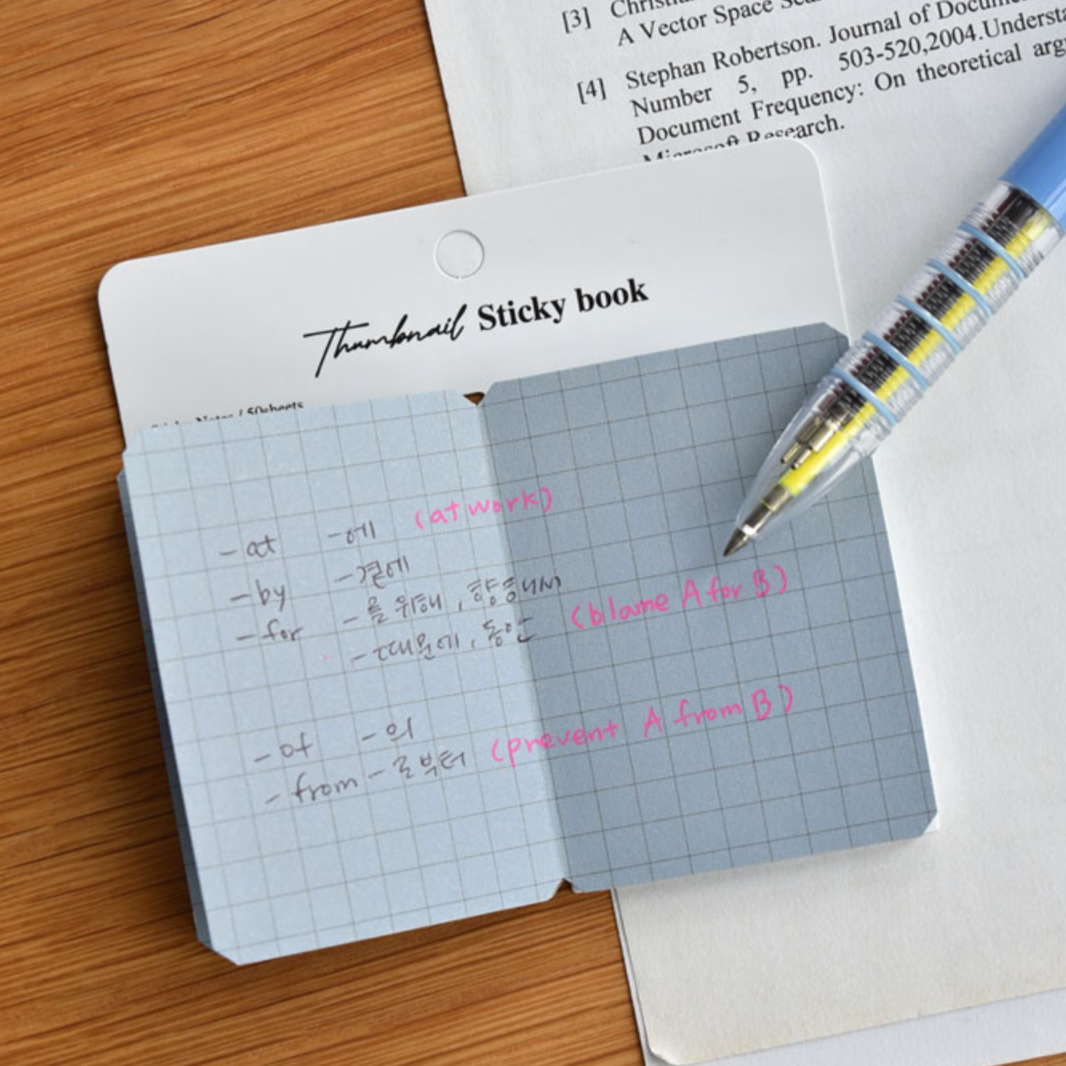 [3] Christi
A Vector Space Sea
[4] Stephan Robertson. Journal of Docum
Number 5, pp. 503-520,2004.Understa
Document Frequency: On theoretical arg
Microsoft Research.
Thumbnail Sticky book
Sticky Notes / 50sheets
-at -에 (at work)
-by -곁에
-for -를 위해, 향해서
-때문에, 동안 (blame A for B)
-of -의
-from -로부터 (prevent A from B)